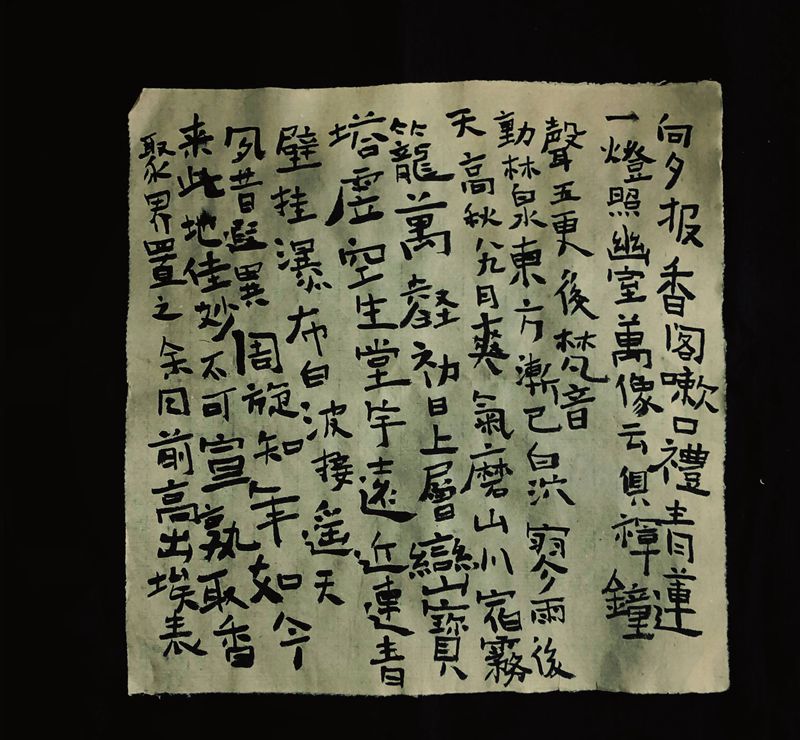 向夕报香阁嗽口禮青蓮
一燈照幽室萬像云俱禅鐘
聲五更後梵音
動林泉東方漸已白泬寥雨後
天高秋八九月爽氣磨山川宿霧
籠萬壑初日上層巒寶
塔虛空生堂宇遠近連青
壁挂瀑布白波接遥天
夙昔異周旋知年如今
来此地佳妙不可宣孰取香
聚界置之余目前高出埃表